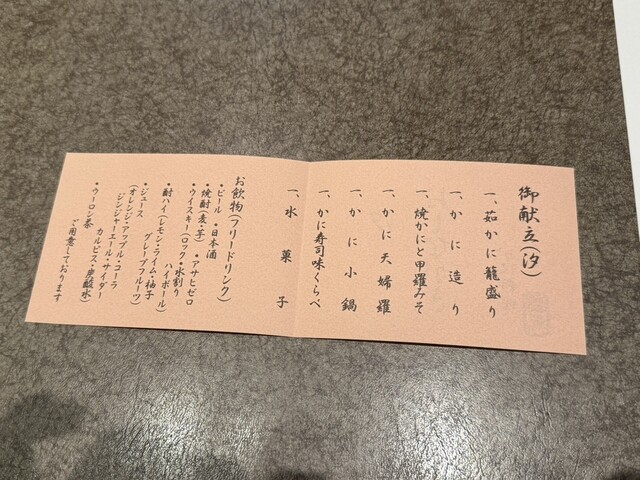 御献立(汐)
一、茹かに籠盛り
一、かに造り
一、焼かにと甲羅みそ
一、かに天婦羅
一、かに小鍋
一、かに寿司味くらべ
一、水菓子
お飲物(フリードリンク)
・ビール ・日本酒
・焼酎(麦・芋) ・アサヒゼロ
・ウイスキー(ロック・水割り
ハイボール)
・酎ハイ(レモン・ライム・柚子
グレープフルーツ)
・ジュース
(オレンジ・アップル・コーラ
ジンジャーエール・サイダー
カルピス・炭酸水)
・ウーロン茶
ご用意しております